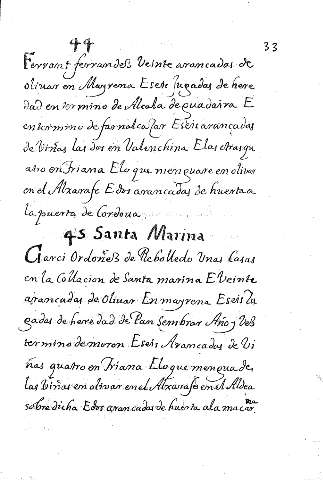 44
33
Ferrant ferrandes Veinte arancadas de
oliuar en Mayrena E seis Jugadas de here
dad en termino de Alcala de guadaira E
en termino de faznalcazar E seis arancadas
de Viñas las dos en Valenchina E las otras qu
atro en Triana E lo que menguare en oliuar
en el Alxarafe E dos arancadas de huerta a
la puerta de Cordoua
45 Santa Marina
Garci Ordoñes de Rebolledo Unas Casas
en la Collacion de Santa marina E Veinte
arançadas de Oliuar En mayrena E seis Iu
gadas de heredad de Pan Sembrar Año y Ves
termino de moron E seis Arancadas de Vi
ñas quatro en Triana E lo que mengua de
las Viñas en oliuar en el Alxarafe en el Aldea
sobre dicha E dos arancadas de huerta a la macar
na